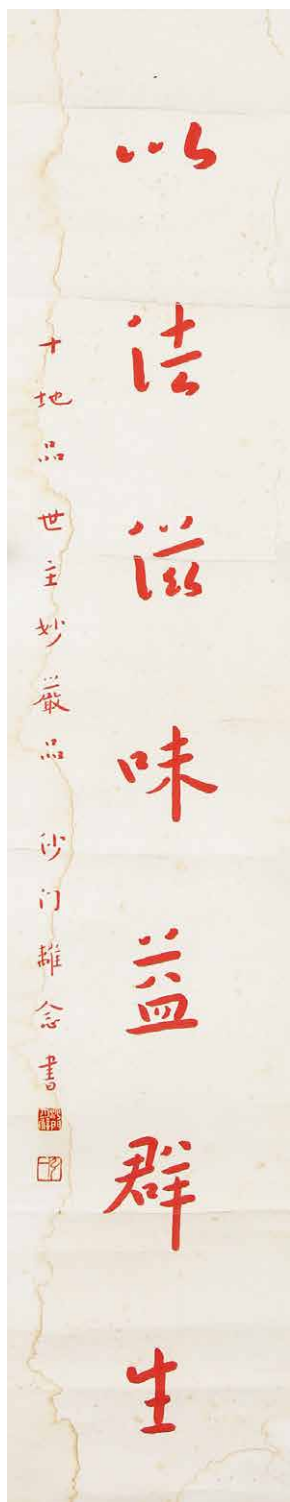 以法滋味益群生
十地品 世主妙嚴品 沙门雝念書